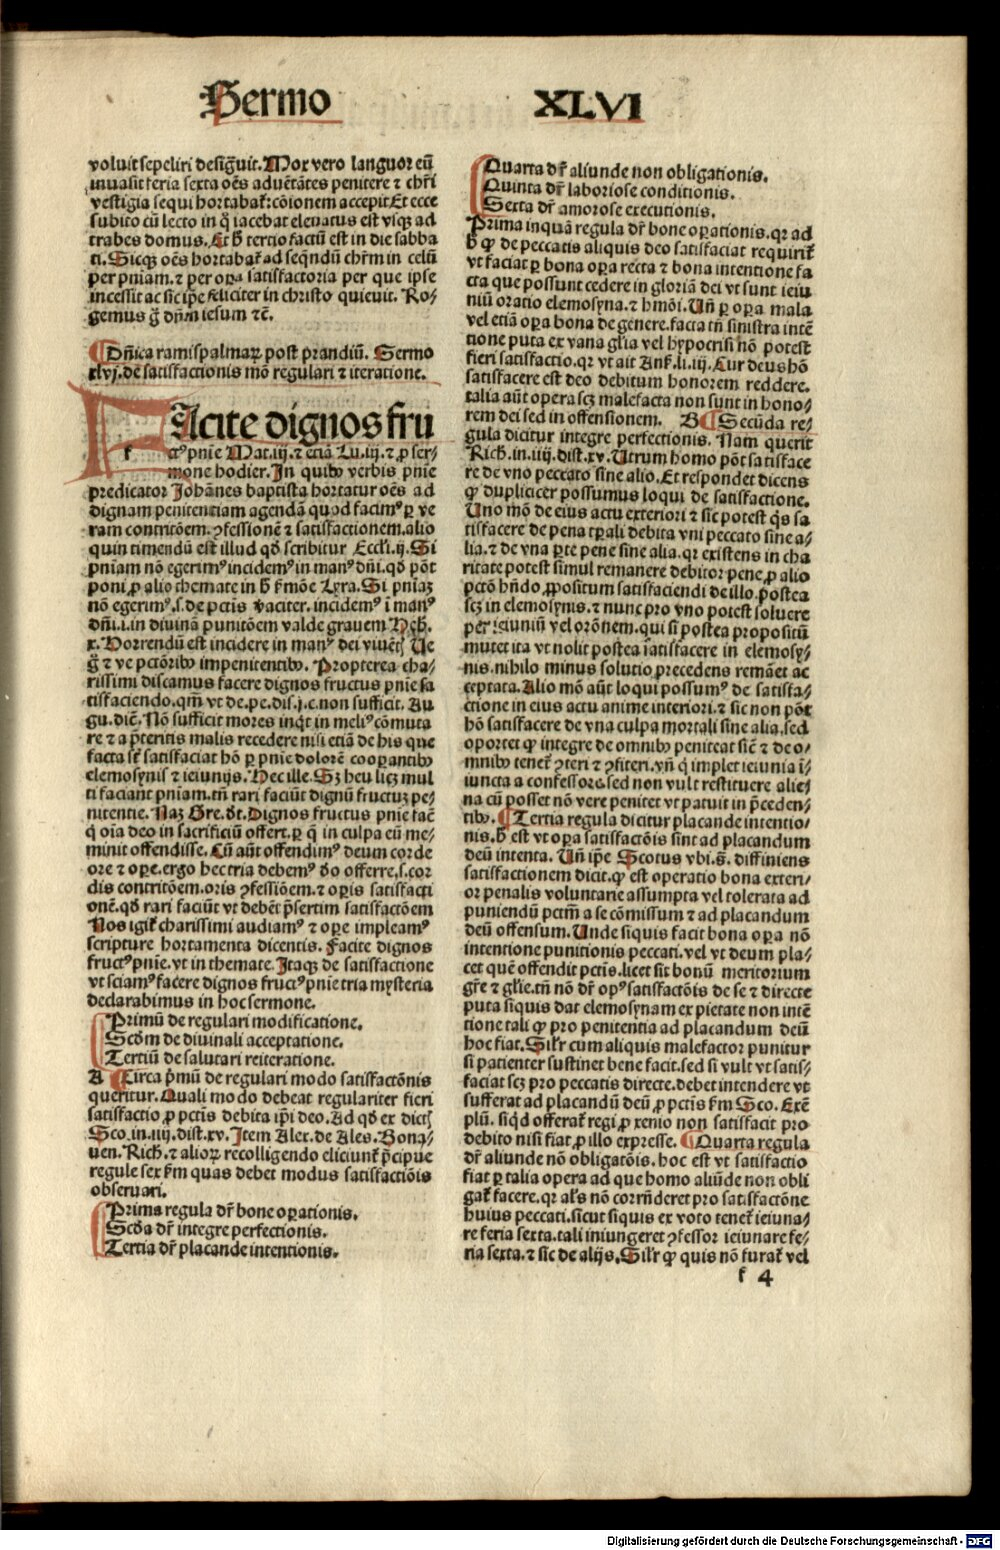 Sermo XLVI
voluit sepeliri desig̃uit. Mox vero languor eũ
inuasit feria sexta oẽs aduẽtãtes penitere ⁊ chr̃i
vestigia sequi hortabat̃: cõionem accepit Et ecce
subito cũ lecto in q̃ iacebat eleuatus est vsq̃ ad
trabes domus. Et h̃ tertio factũ est in die sabba
ti. Sicq̃ oẽs hortabat̃ ad seqñdũ chr̃m in celũ
per pniam. ⁊ per oꝑa satisfactoria per que ipse
incessit ac sic ip̃e feliciter in christo quieuit. Ro-
gemus g̃ dñm iesum ⁊c̃.
Dñica ramispalmaꝝ post prandiũ. Sermo
xlvj. de satisfactionis mõ regulari ⁊ iteratione.
FAcite dignos fru
f ctꝰ pnĩe Mat. iij. ⁊ etiã Lu. iij. ⁊ ꝓ ser-
mone hodier. In quibꝰ verbis pnĩe
predicator Johãnes baptista hortatur oẽs ad
dignam penitentiam agendã quod facimꝰ ꝑ ve
ram contritõem. ꝯfessionẽ ⁊ satisfactionem. alio
quin timendũ est illud qđ scribitur Eccli. ij. Si
pniam nõ egerimꝰ incidemꝰ in manꝰ dñi. qđ põt
poni ꝓ alio themate in h̃ f̃mõe Lyra. Si pniaꝫ
nõ egerimꝰ. s. de pctĩs ṽaciter. incidemꝰ ĩ manꝰ
dñi. i. in diuinã punitõem valde grauem Heb̃.
x. Horrendũ est incidere in manꝰ dei viuẽtꝭ Ue
g̃ ⁊ ve pctõribꝰ impenitentibꝰ. Propterea cha-
rissimi discamus facere dignos fructus pnĩe sa
tisfaciendo. qm̃ vt de. pe. dis. j. c. non sufficit. Au
gu. dic̃. Nõ sufficit mores inqt in meliꝰ cõmuta
re ⁊ a p̃teritis malis recedere nisi etiã de his que
facta st̃ satisfaciat hõ ꝑ pnĩe dolorẽ cooꝑantibꝰ
elemosynis ⁊ ieiunijs. Hec ille. Sꝫ heu licꝫ mul
ti faciant pniam. tñ rari faciũt dignũ fructuꝫ pe-
nitentie. Naꝫ Gre. d̃t. Dignos fructus pnĩe facẽ
q̃ oĩa deo in sacrificiũ offert. ꝑ q̃ in culpa eũ me-
minit offendisse. Cũ aũt offendimꝰ deum corde
ore ⁊ oꝑe. ergo hec tria debemꝰ đo offerre. s. cor
dis contritõem. oris ꝯfessiõem. ⁊ oꝑis satisfacti
onẽ. qđ rari faciũt vt debẽt p̃sertim satisfactõem
Nos igit̃ charissimi audiamꝰ ⁊ oꝑe impleamꝰ
scripture hortamenta dicentis. Facite dignos
fructꝰ pnĩe. vt in themate. Itaqꝫ de satisfactione
vt sciamꝰ facere dignos fructꝰ pnĩe tria mysteria
declarabimus in hoc sermone.
Primũ de regulari modificatione.
Scđm de diuinali acceptatione.
Tertiũ de salutari reiteratione.
A Circa p̃mũ de regulari modo satisfactõnis
queritur. Quali modo debeat regulariter fieri
satisfactio ꝓ pctĩs debita ip̃i deo. Ad qđ ex dictꝭ
Sco. in. iiij. dist. xv. Item Alex. de Ales. Bona-
uen. Rich. ⁊ alioꝝ recolligendo eliciunt̃ p̃cipue
regule sex f̃m quas debet modus satisfactiõis
obseruari.
Prima regula dr̃ bone oꝑationis.
Scđa dr̃ integre perfectionis.
Tertia dr̃ placande intentionis.
Quarta dr̃ aliunde non obligationis.
Quinta dr̃ laboriose conditionis.
Sexta dr̃ amorose executionis.
Prima inquã regula dr̃ bone oꝑationis. qꝛ ad
h̃ ꝙ de peccatis aliquis deo satisfaciat requirit̃
vt faciat ꝑ bona oꝑa recta ⁊ bona intentione fa
cta que possunt cedere in gloriã dei vt sunt ieiu
niũ oratio elemosyna. ⁊ hmõi. Uñ ꝑ oꝑa mala
vel etiã oꝑa bona de genere. facta tñ sinistra intẽ
tione puta ex vana gl̃ia vel hypocrisi nõ potest
fieri satisfactio. qꝛ vt ait Ans̃. li. iij. Cur deus hõ
satisfacere est deo debitum honorem reddere.
talia aũt opera scꝫ malefacta non sunt in hono-
rem dei sed in offensionem. B Secũda re-
gula dicitur integre perfectionis. Nam querit
Rich. in. iiij. dist. xv. Utrum homo põt satisface
re de vno peccato sine alio. Et respondet dicens
ꝙ dupliciter possumus loqui de satisfactione.
Uno mõ de eius actu exteriori ⁊ sic potest q̃s sa
tisfacere de pena tꝑali debita vni peccato sine a-
lia. ⁊ de vna ꝑte pene sine alia. qꝛ existens in cha
ritate potest simul remanere debitor pene ꝓ alio
pctõ hñdo ꝓpositum satisfaciendi de illo. postea
scꝫ in elemosynis. ⁊ nunc pro vno potest soluere
per ieiuniũ vel orõnem. qui si postea propositũ
mutet ita vt nolit postea satisfacere in elemosy-
nis. nihilo minus solutio precedens remãet ac
ceptata. Alio mõ aũt loqui possumꝰ de satisfa-
ctione in eius actu anime interiori. ⁊ sic non põt
hõ satisfacere de vna culpa mortali sine alia. sed
oportet ꝙ integre de omnibꝰ peniteat sic̃ ⁊ de o-
mnibꝰ tenet̃ ꝯteri ⁊ ꝯfiteri. vñ q̃ implet ieiunia ĩ-
iuncta a confessore. sed non vult restituere alie-
na cũ posset nõ vere penitet vt patuit in p̃ceden-
tibꝰ. Tertia regula dicitur placande intentio-
nis. h̃ est vt oꝑa satisfactõis sint ad placandum
deũ intenta. Uñ ip̃e Scotus vbi. s̃. diffiniens
satisfactionem dicit. ꝙ est operatio bona exteri-
or penalis voluntarie assumpta vel tolerata ad
puniendũ pctm̃ a se cõmissum ⁊ ad placandum
deũ offensum. Unde siquis facit bona oꝑa nõ
intentione punitionis peccati. vel vt deum pla-
cet quẽ offendit pctĩs. licet sit bonũ meritorium
gr̃e ⁊ gl̃ie. tñ nõ dr̃ opꝰ satisfactõis de se ⁊ directe
puta siquis dat elemosynam ex pietate non intẽ
tione tali ꝙ pro penitentia ad placandum deũ
hoc fiat. Sil̃r cum aliquis malefactor punitur
si patienter sustinet bene facit. sed si vult vt satis-
faciat scꝫ pro peccatis directe. debet intendere vt
sufferat ad placandũ deũ ꝓ pctĩs f̃m Sco. Exẽ
plũ. siqđ offerat̃ regi ꝓ xenio non satisfacit pro
debito nisi fiat ꝓ illo expresse. Quarta regula
dr̃ aliunde nõ obligatõis. hoc est vt satisfactio
fiat ꝑ talia opera ad que homo aliũde non obli
gat̃ facere. qꝛ al̃s nõ corrñderet pro satisfactõne
huius peccati. sicut siquis ex voto tenet̃ ieiuna-
re feria sexta. tali iniungeret ꝯfessor ieiunare fe-
ria sexta. ⁊ sic de alijs. Sil̃r ꝙ quis nõ furat̃ vel
f 4
Digitalisierung gefördert durch die Deutsche Forschungsgemeinschaft - DFG